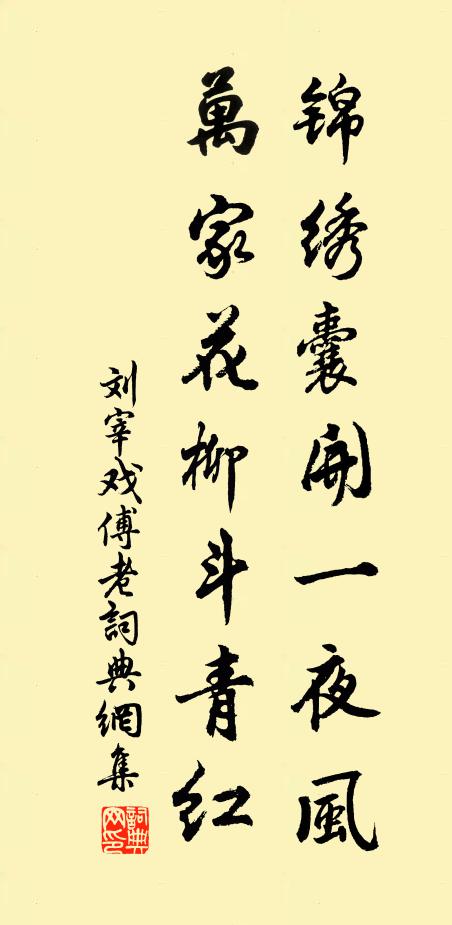 锦绣囊開一夜風
萬家花柳斗青红
刘宰戏傅老詞典網集
詞典网印